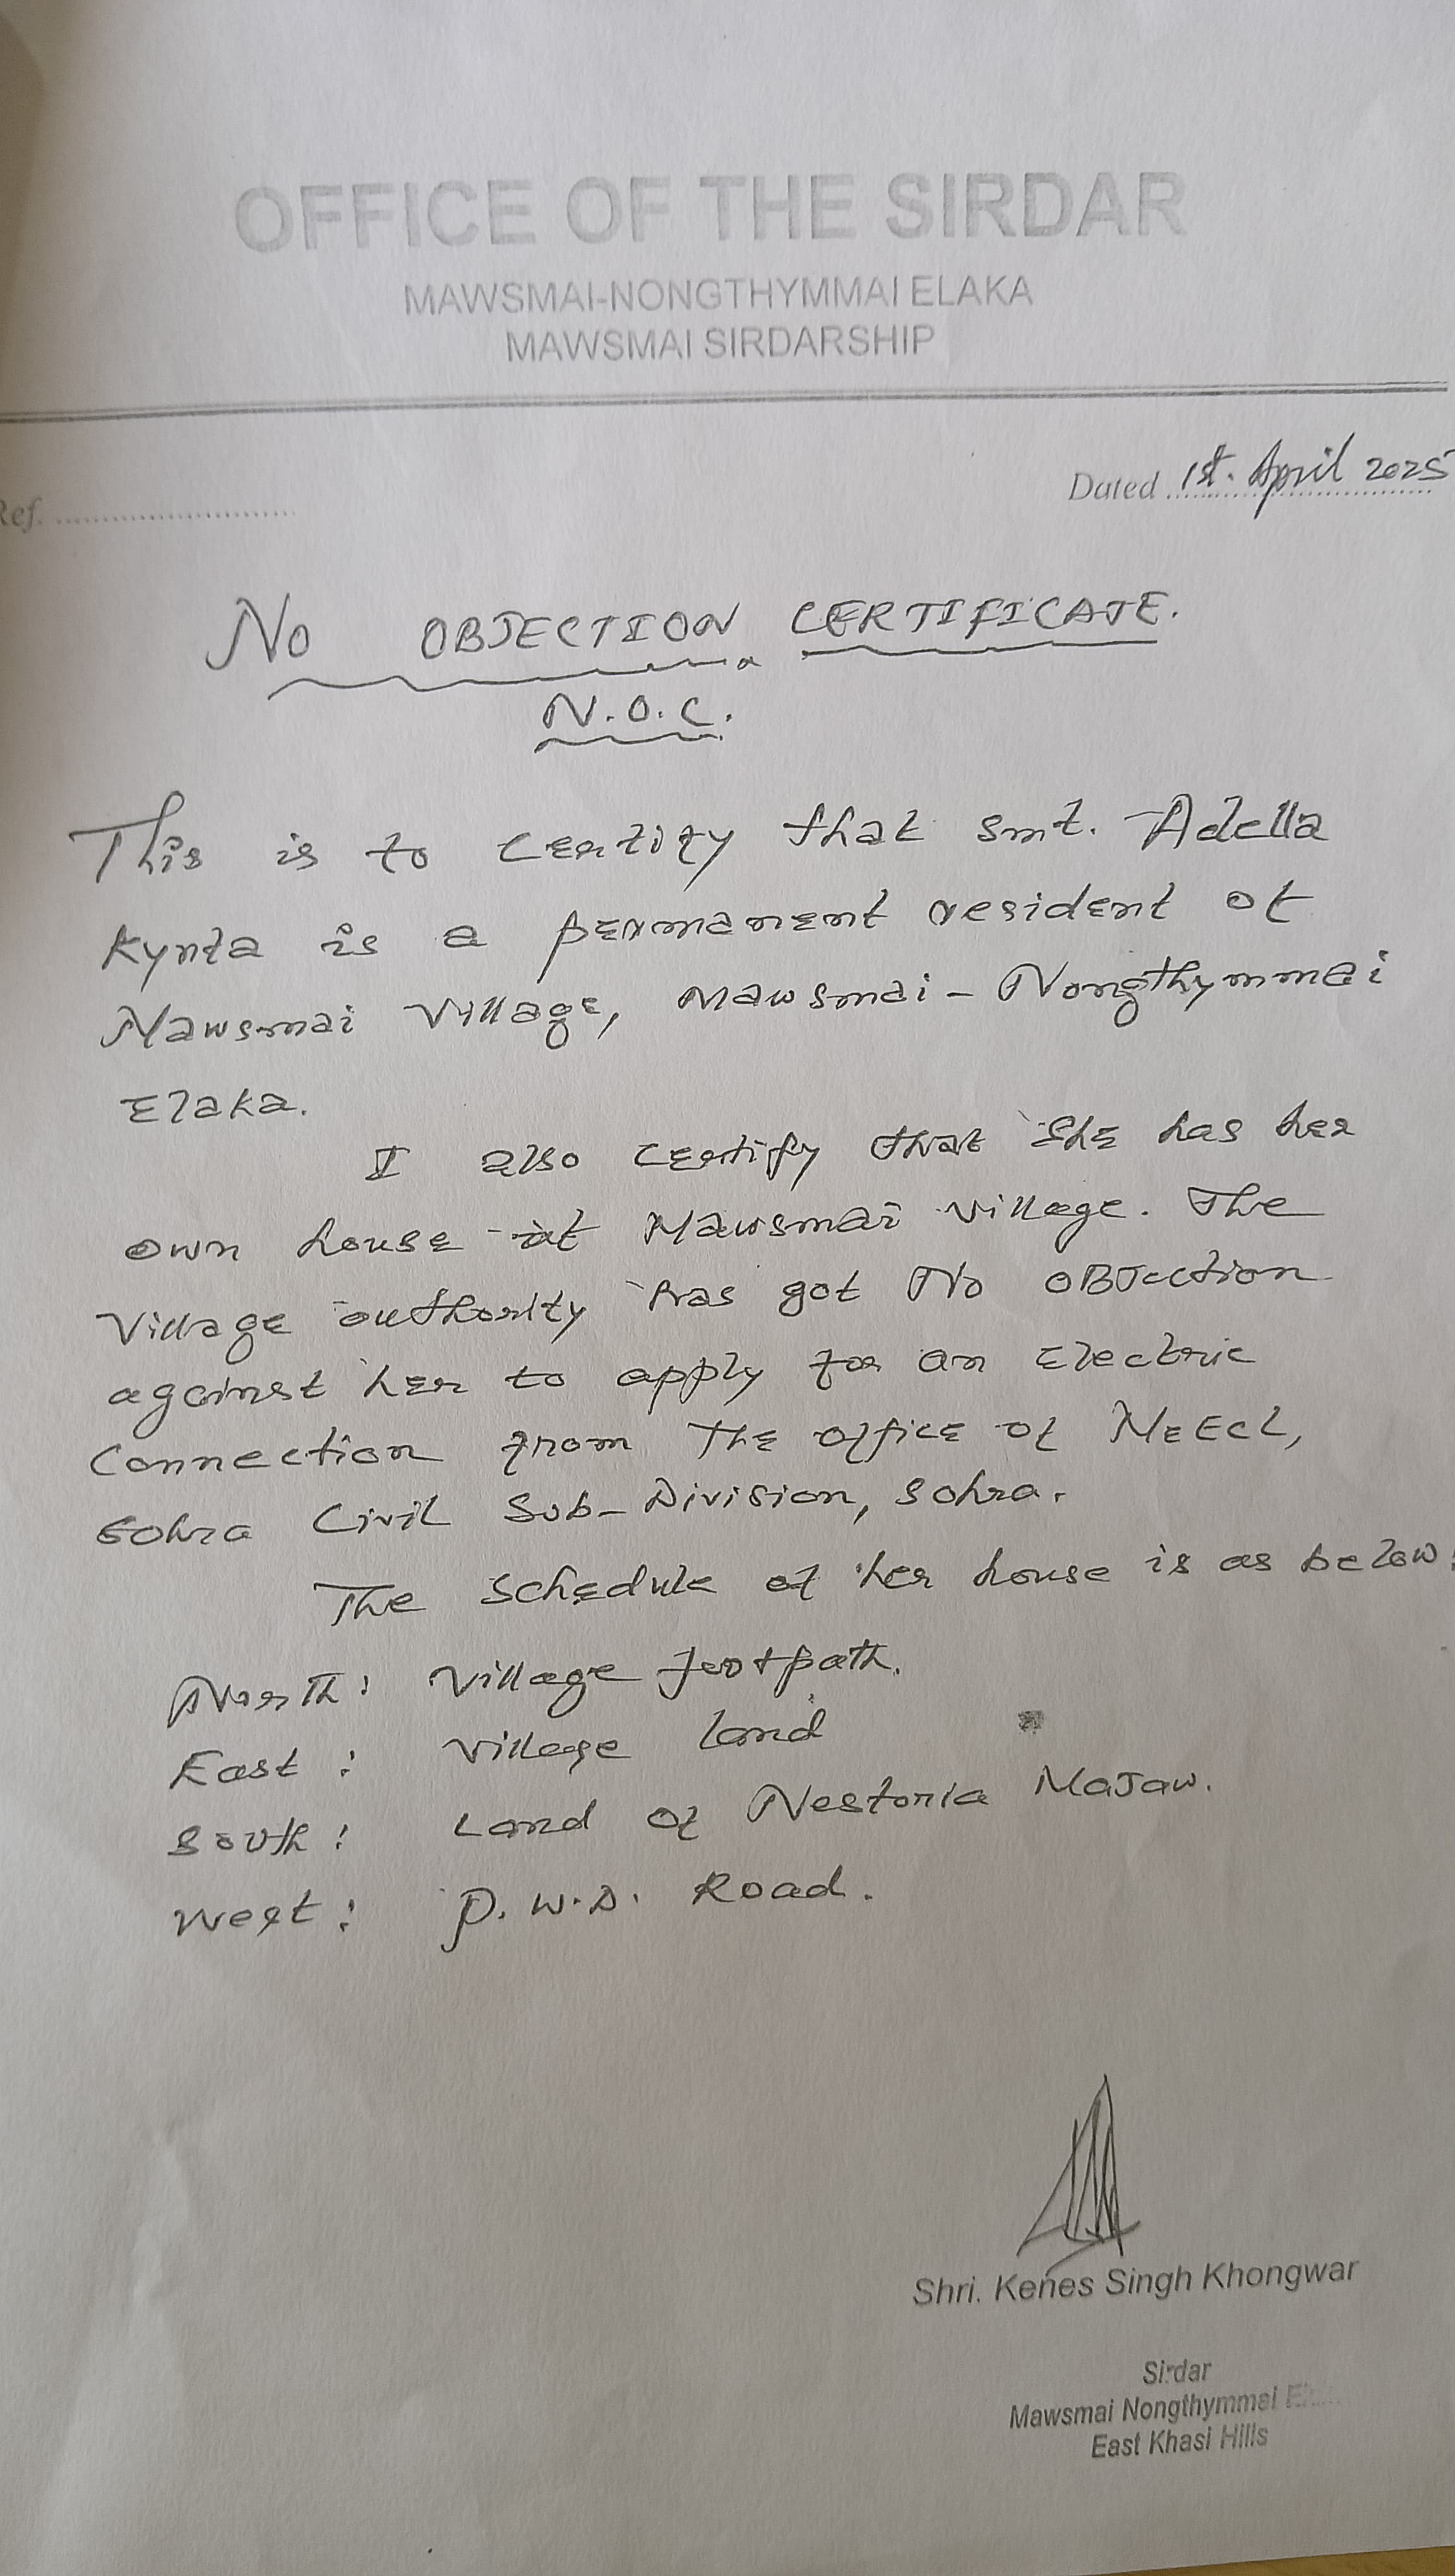 OFFICE OF THE SIRDAR
MAWSMAI-NONGTHYMMAI ELAKA
MAWSMAI SIRDARSHIP
Dated 1st. April 2025
Ref.
No OBJECTION CERTIFICATE.
N.O.C.
This is to certify that smt. Adella
Kynta is a permanent resident of
Mawsmai Village, Mawsmai - Nongthymmai
Elaka.
I also certify that she has her
own house at Mawsmai village. The
Village authority has got No OBJection
against her to apply for an Electric
Connection from The office of MeECL,
Sohra Civil Sub-Division, Sohra.
The Schedule of her house is as below:
North: Village footpath.
East : Village land
South : Land of Nestoria Majaw.
West : P.W.D. Road.
Shri. Kenes Singh Khongwar
Sirdar
Mawsmai Nongthymmai
East Khasi Hills